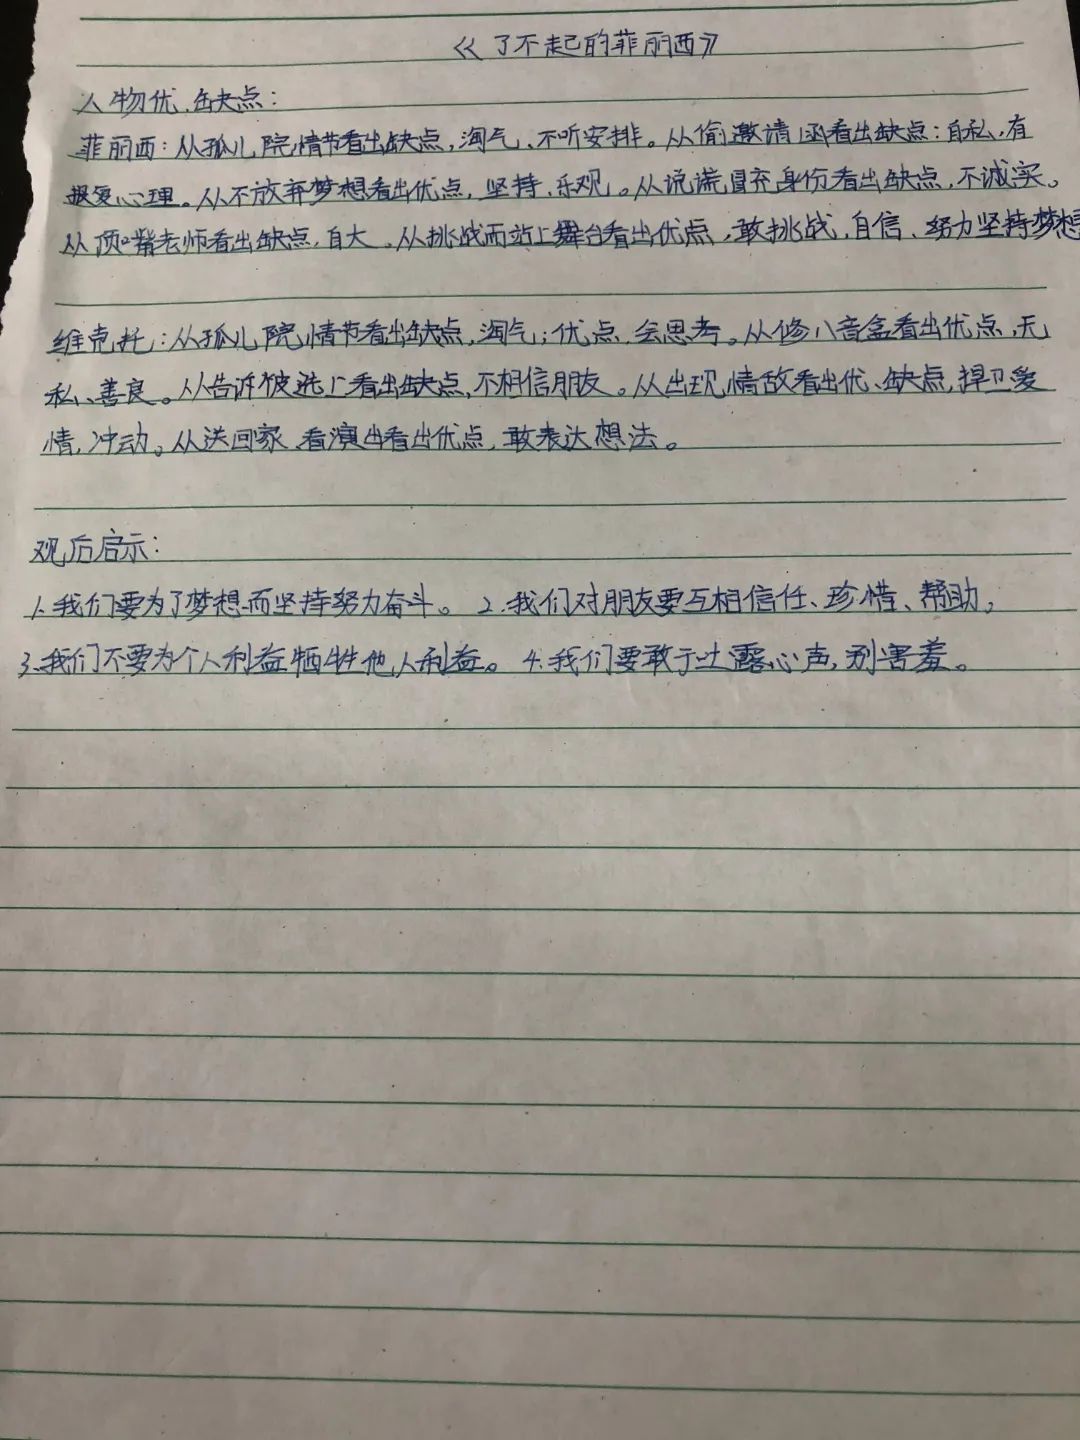 《了不起的菲丽西》
人物优、缺点：
菲丽西：从孤儿院情节看出缺点，淘气、不听安排。从偷邀请函看出缺点：自私，有
报复心理。从不放弃梦想看出优点，坚持、乐观。从说谎冒充身份看出缺点，不诚实。
从顶嘴老师看出缺点，自大。从挑战而站上舞台看出优点，敢挑战，自信、努力坚持梦想
维克托：从孤儿院情节看出缺点，淘气；优点，会思考。从修八音盒看出优点，无
私、善良。从告诉被选上看出缺点，不相信朋友。从出现情敌看出优、缺点，捍卫爱
情，冲动。从送回家、看演出看出优点，敢表达想法。
观后启示：
1.我们要为了梦想而坚持努力奋斗。 2.我们对朋友要互相信任、珍惜、帮助。
3.我们不要为个人利益牺牲他人利益。 4.我们要敢于吐露心声，别害羞。